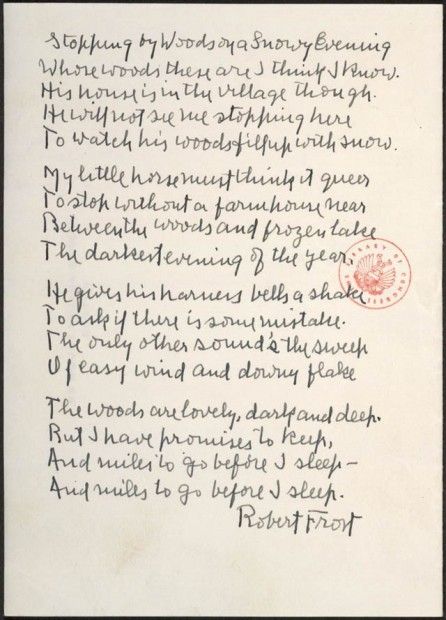 Stopping by Woods on a Snowy Evening
Whose woods these are I think I know.
His house is in the village though.
He will not see me stopping here
To watch his woods fill up with snow.
My little horse must think it queer
To stop without a farmhouse near
Between the woods and frozen lake
The darkest evening of the year.
He gives his harness bells a shake
To ask if there is some mistake.
The only other sound's the sweep
Of easy wind and downy flake
The woods are lovely, dark and deep.
But I have promises to keep,
And miles to go before I sleep –
And miles to go before I sleep.
Robert Frost
LIBRARY OF CONGRESS